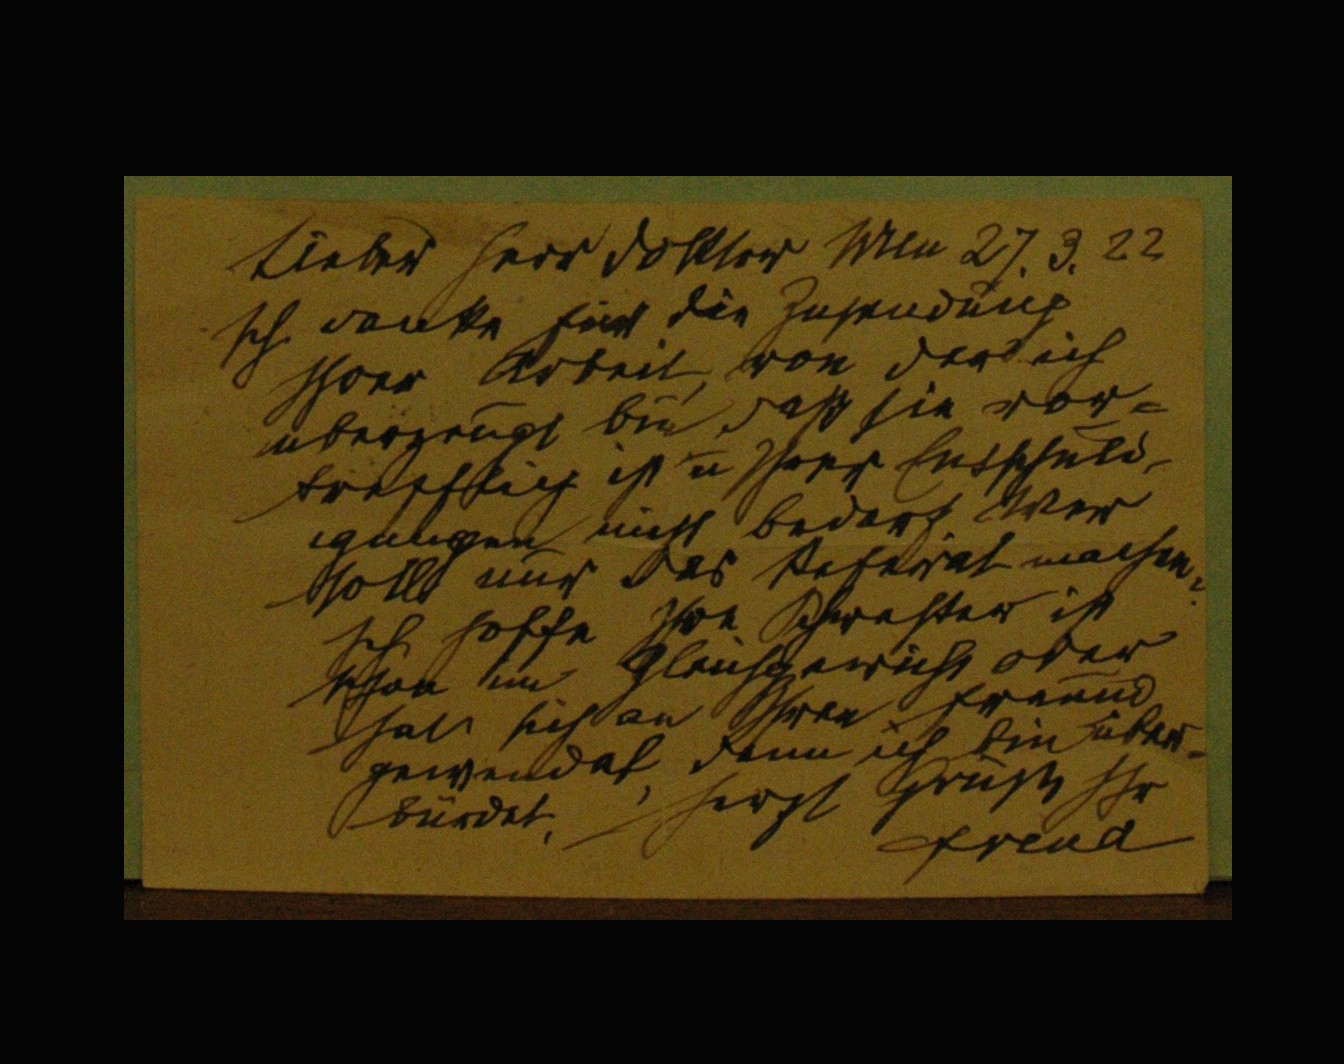 Lieber Herr Doktor Wien 27.3.22
Ich danke für die Zusendung
Ihrer Arbeit, von der ich
überzeugt bin, daß sie vor-
trefflich ist u Ihrer Entschuld-
igungen nicht bedarf. Wer
soll nur das Referat machen?
Ich hoffe Ihre Schwester ist
schon im Gleichgewicht oder
hat sich an Ihren Freund
gewendet, denn ich bin über-
bürdet. Herzl Grüße Ihr
Freud